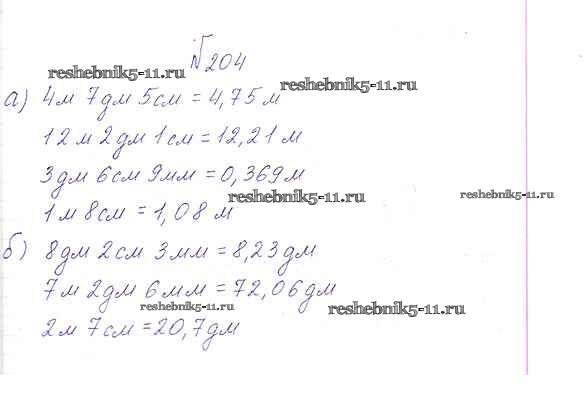 №204
reshebnik5-11.ru
reshebnik5-11.ru
а) 4м 7дм 5см = 4,75 м
12 м 2 дм 1 см = 12,21 м
3дм 6см 9мм = 0,369м
reshebnik5-11.ru
reshebnik5-11.ru
1м 8см = 1,08 м
б) 8дм 2см 3мм = 8,23дм
7м 2дм 6мм = 72,06дм
reshebnik5-11.ru
reshebnik5-11.ru
2м 7см = 20,7дм